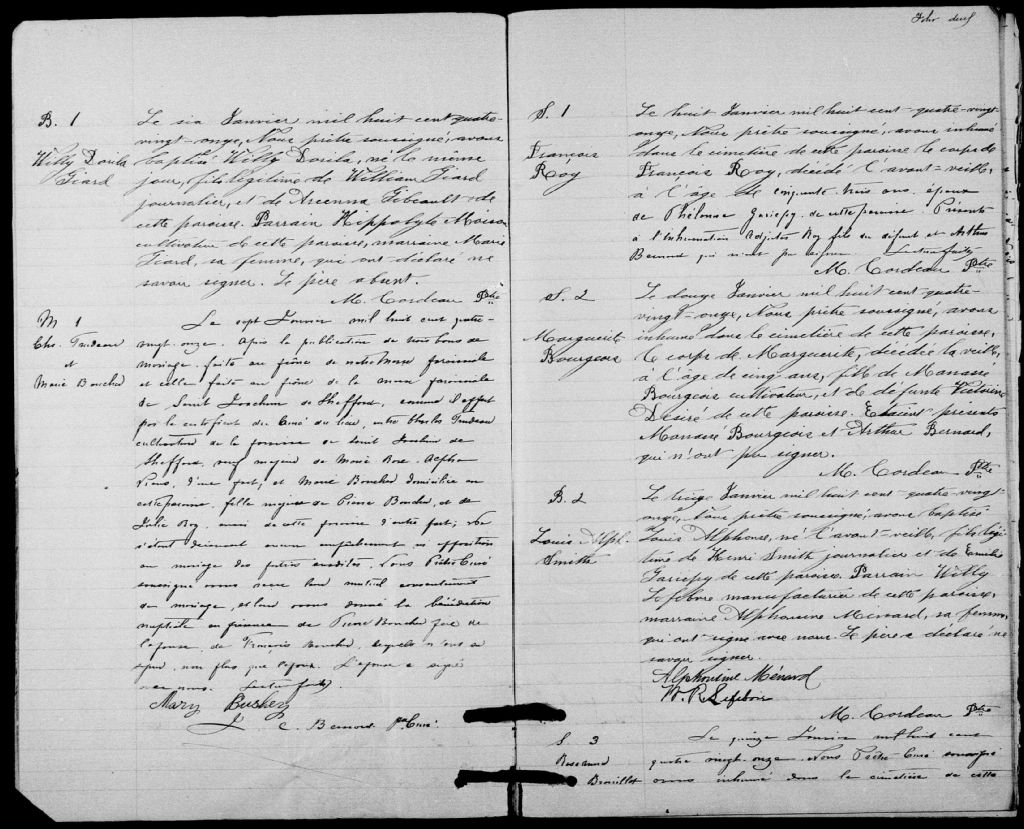 B. 1
Willy Dorila
Ficard
Le six Janvier mil huit cent quatre-
vingt-onze, Nous prêtre soussigné, avons
baptisé Willy Dorila, né le même
jour, fils légitime de William Ficard
journalier, et de Arcenna Gibeault de
cette paroisse. Parrain Hippolyte Moison
cultivateur de cette paroisse, marraine Marie
Ficard, sa femme, qui ont déclaré ne
savoir signer. Le père absent.
M. Cordeau Ptre
M 1
Chs. Trudeau
et
Marie Boucher
Le sept Janvier mil huit cent quatre-
vingt-onze. Après la publication de trois bans de
mariage, faite au prône de notre messe paroissiale
et celle faite au prône de la messe paroissiale
de Saint Joachim de Shefford, comme il appert
par le certificat du Curé du lieu, entre Charles Trudeau
cultivateur de la paroisse de Saint Joachim de
Shefford, veuf majeur de Marie Rose
d'une part; et Marie Boucher domiciliée en
cette paroisse, fille majeure de Pierre Boucher, et de
Julie Roy, aussi de cette paroisse d'autre part; ne
s'étant découvert aucun empêchement ni opposition
au mariage des parties susdites, Nous Prêtre Curé
soussigné avons reçu leur mutuel consentement
de mariage, et leur avons donné la bénédiction
nuptiale en présence de Pierre Boucher père de
l'épouse, de François Boucher, lesquels n'ont su
signer, non plus que l'époux. L'épouse a signé
avec nous. Lecture faite.
Mary Bushey
J. C. Bernard Ptre Curé.
Folio deux
S. 1
François
Roy
Le huit Janvier mil huit cent-quatre-vingt-
onze, Nous prêtre soussigné, avons inhumé
dans le cimetière de cette paroisse le corps de
François Roy, décédé l'avant-veille,
à l'âge de cinquante trois ans, époux
de Philomène Gariepy de cette paroisse. Présents
à l'inhumation Adjutor Roy fils du défunt et Arthur
Bernard qui n'ont pu signer. Lecture faite
M. Cordeau Ptre
S. 2
Marguerite
Bourgeois
Le douze Janvier mil huit-cent-quatre-
vingt-onze, Nous prêtre soussigné, avons
inhumé dans le cimetière de cette paroisse,
le corps de Marguerite, décédée la veille,
à l'âge de cinq ans, fille de Manassé
Bourgeois cultivateur, et de défunte Victoire
Désiré de cette paroisse. Etaient présents
Manassé Bourgeois et Arthur Bernard,
qui n'ont pu signer.
M. Cordeau Ptre
B. 2
Louis Alph.
Smith
Le treize Janvier mil huit cent-quatre-vingt-
onze, Nous prêtre soussigné, avons baptisé
Louis Alphonse, né l'avant-veille, fils légi
time de Henri Smith journalier et de Emilie
Gariepy de cette paroisse. Parrain Willy
Lefebvre manufacturier de cette paroisse,
marraine Alphonsine Ménard, sa femme,
qui ont signé avec nous. Le père a déclaré ne
savoir signer.
Alphonsine Ménard
W. R. Lefebvre
M. Cordeau Ptre
S. 3
Brouillet
Le quinze Janvier mil huit cent
quatre vingt-onze. Nous Prêtre Curé soussigné
avons inhumé dans le cimetière de cette